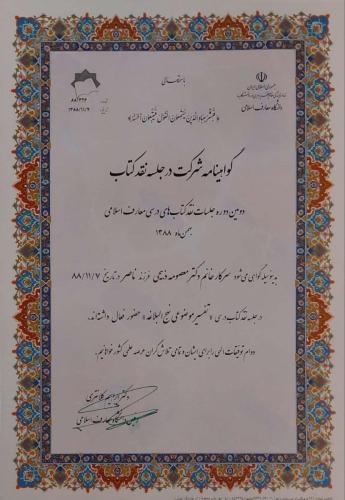 باسمه تعالی
جمهوری اسلامی ایران
دانشگاه معارف اسلامی
۸۸/۲۲۶
۱۳۸۸/۱۱/۶
«فبشر عباد الذین یستمعون القول فیتبعون احسنه»
گواهینامه شرکت در جلسه نقد کتاب
دومین دوره جلسات نقد کتاب‌های درسی معارف اسلامی
بهمن ماه ۱۳۸۸
بدینوسیله گواهی می‌شود سرکار خانم دکتر معصومه ذبیحی فرزند ناصر در تاریخ ۸۸/۱۱/۷
در جلسه نقد کتاب درسی «تفسیر موضوعی نهج البلاغه» حضور فعال داشته‌اند.
دوام توفیقات الهی را برای ایشان و تمامی تلاش‌گران عرصه علمی کشور خواهانیم.
دکتر ابراهیم کلانتری
دانشگاه معارف اسلامی